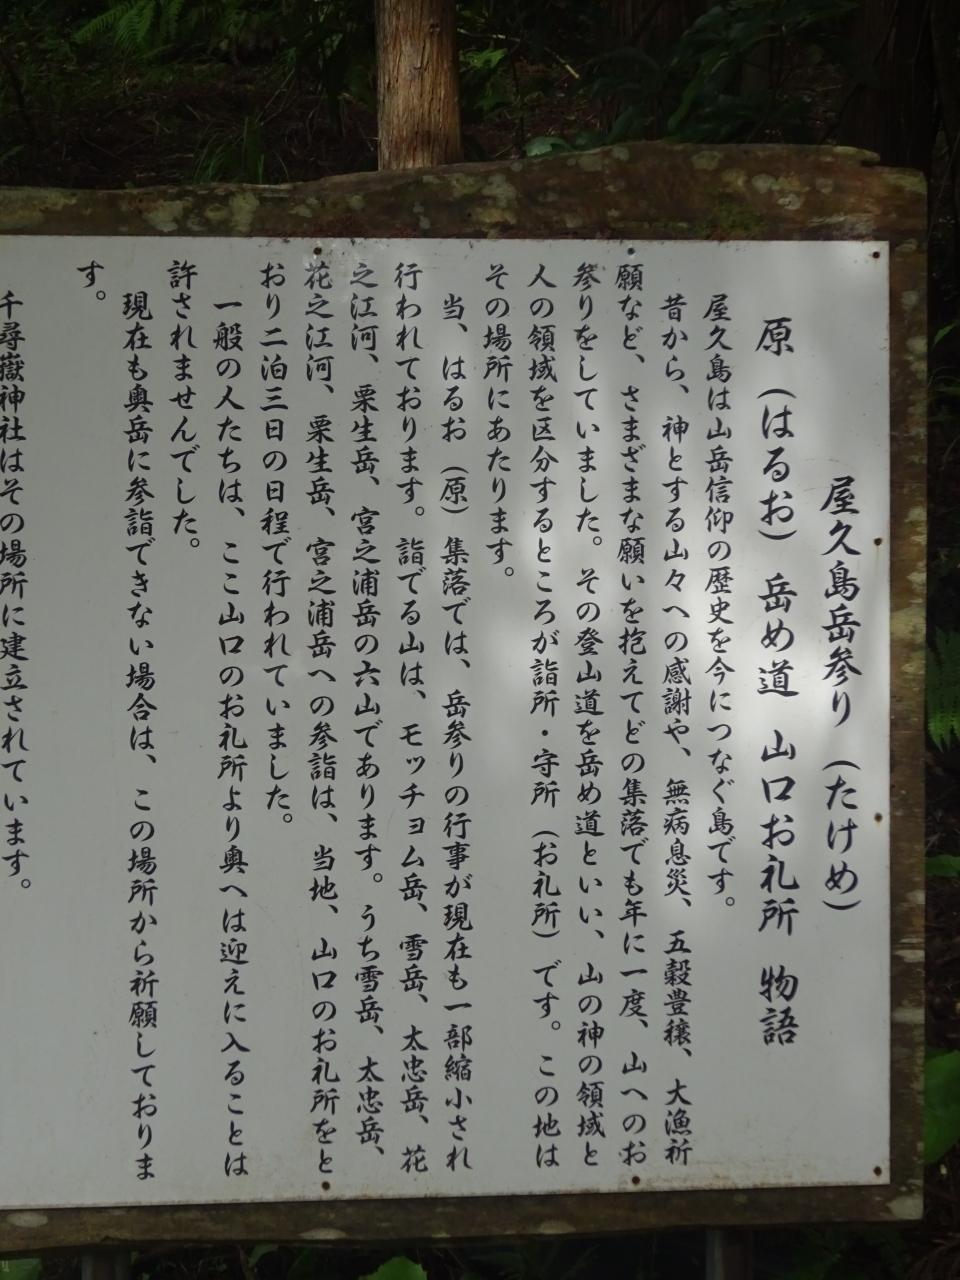 屋久島岳参り（たけめ）
原（はるお）岳め道　山口お礼所　物語
屋久島は山岳信仰の歴史を今につなぐ島です。
昔から、神とする山々への感謝や、無病息災、五穀豊穣、大漁祈
願など、さまざまな願いを抱えてどの集落でも年に一度、山へのお
参りをしていました。その登山道を岳め道といい、山の神の領域と
人の領域を区分するところが詣所・守所（お礼所）です。この地は
その場所にあたります。
当、はるお（原）集落では、岳参りの行事が現在も一部縮小され
行われております。詣でる山は、モッチョム岳、雪岳、太忠岳、花
之江河、栗生岳、宮之浦岳の六山であります。うち雪岳、太忠岳、
花之江河、栗生岳、宮之浦岳への参詣は、当地、山口のお礼所をと
おり二泊三日の日程で行われていました。
一般の人たちは、ここ山口のお礼所より奥へは迎えに入ることは
許されませんでした。
現在も奥岳に参詣できない場合は、この場所から祈願しておりま
す。
千尋嶽神社はその場所に建立されています。